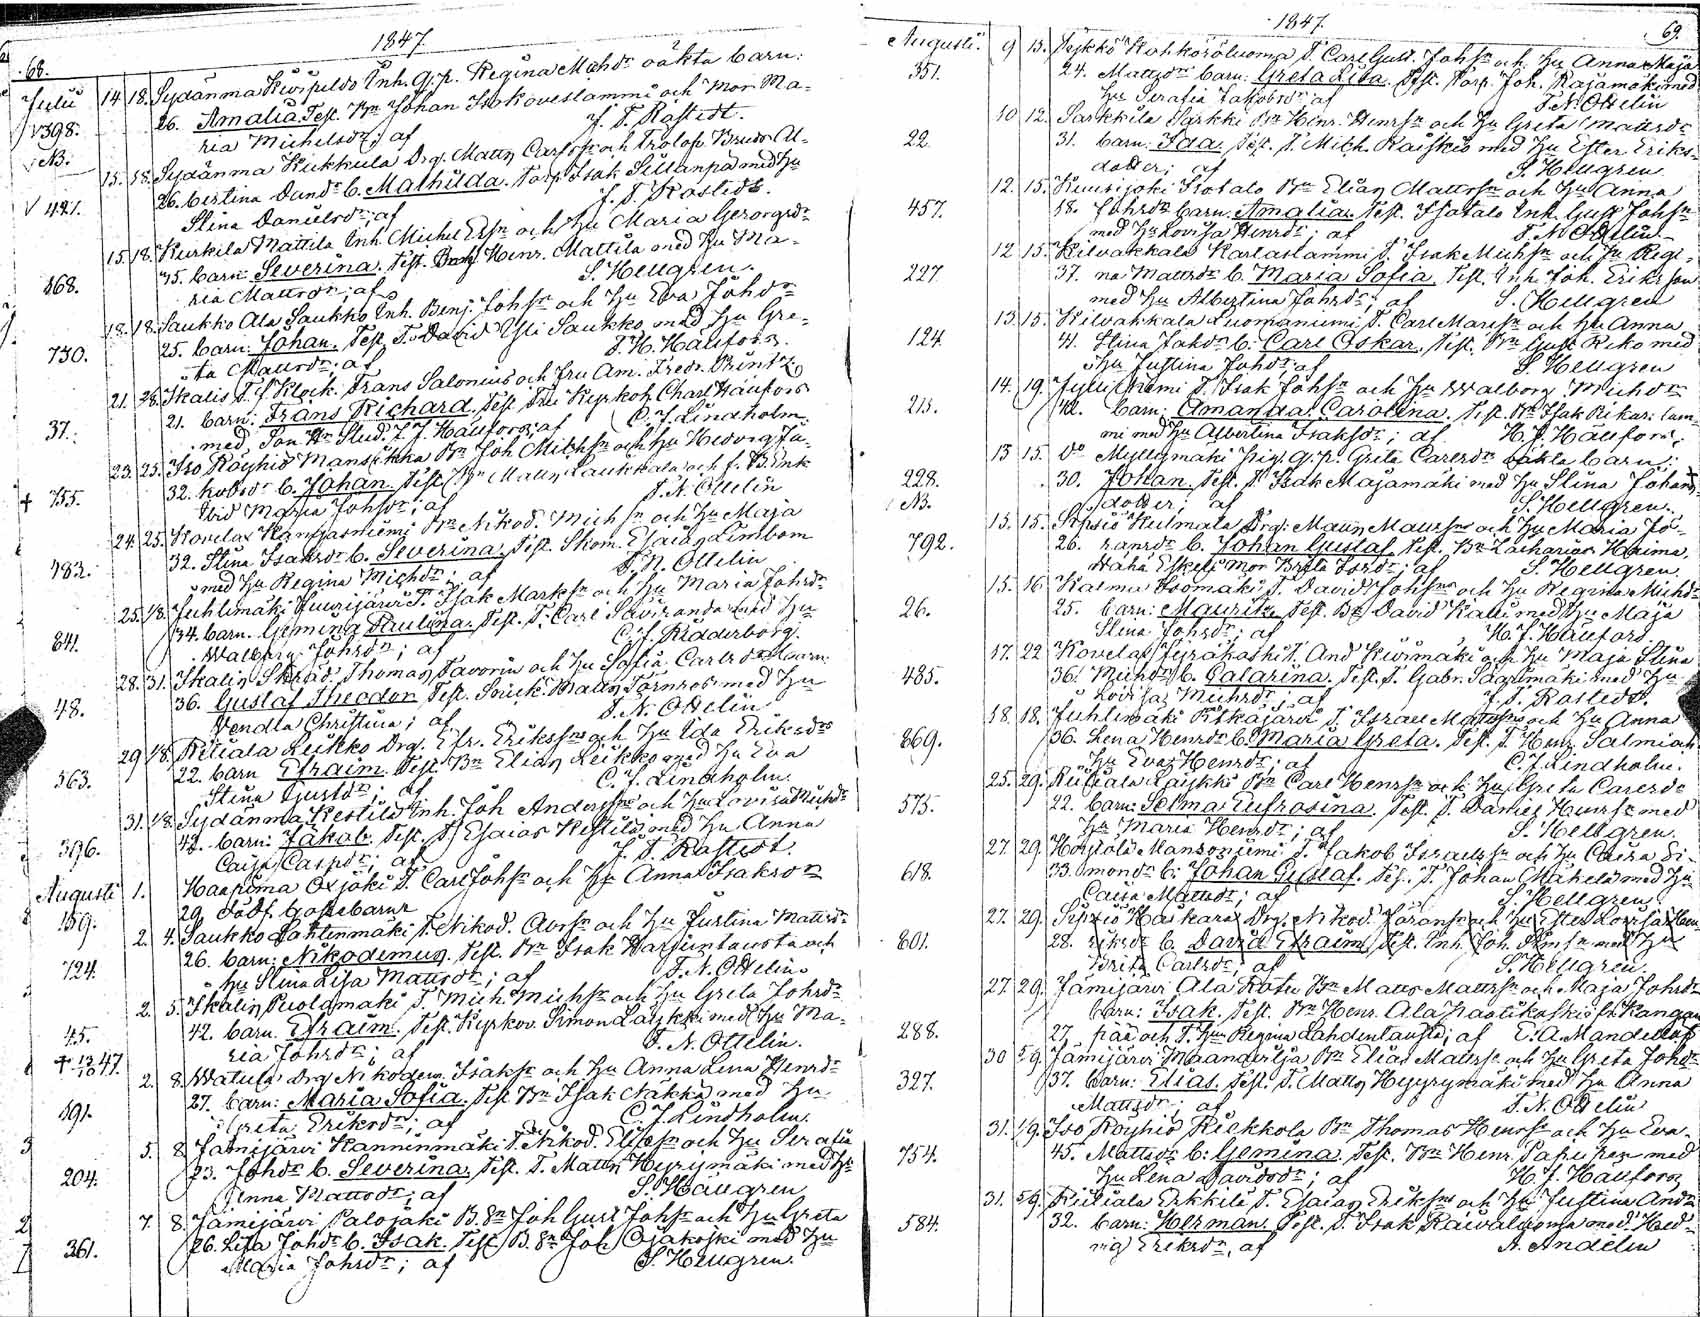 68.
1847.
Julii 14 18. Sydänmä Kivipeldo Inh. q.p. Regina Michdr oäkta barn:
v 398. 26. Amalia. Test. Bn Johan Isokoveslammi och Mor Ma-
NB. ria Michelsdr; af J. T. Rostedt.
15. 18. Sydänmä Kukkula Drg. Matts Carlsson och Trolof. Brud Al-
v 421. 26. bertina Davdr b. Mathilda. Torp. Isak Sillanpä med Hu
Stina Danielsdr; af J. T. Rostedt.
15. 18. Kurkila Mattila Inh. Michel Ersn och Hu Maria Georgsdr
168. 45. barn: Severina. Test. Bn Henr. Mattila med Hu Ma-
ria Mattsdr; af S. Hellgren.
18. 18. Saukko Ala Saukko Inh. Benj. Johsn och Hu Eva Johdr
730. 25. barn: Johan. Test. T. David Yli Saukko med Hu Gre-
ta Mattsdr; af F. H. Häufors.
21. 28. Ikalis T.f. Klock. Frans Salonius och Fru Am. Fredr. Printz
37. 21. barn: Frans Richard. Test. Fru Kyrkoh. Charl. Häufors
med Son Hn Stud. Z. J. Häufors; af C. J. Lindholm
23. 25. Iso Röyhiö Mansikka Bn Joh Michsn och Hu Hedvig Ja-
+ 755. 32. kobsdr b. Johan. Test. Bn Matts Laukkala och f. B. Enk.
vid Maria Johsdr; af F. N. Ottelin
24. 25. Kovelax Kangasniemi Bn Nikod. Michsn och Hu Maja
483. 32. Stina Isaksdr b. Severina; Test. Skom. Esaias Limbom
med Hu Regina Michdr; af F. N. Ottelin
25. 1/8. Juhtimäki Kuusijärvi T. Isak Marksn och Hu Maria Johsdr
841. 34. barn. Gemina Paulina. Test. T. Carl Saviranda med Hu
Walborg Johsdr; af C. J. Ridderborg.
28. 31. Ikalis Skräd. Thomas Favorin och Hu Sofia Carlsdr barn
48. 36. Gustaf Theodor Test. Snick. Matts Törnroos med Hu
Vendla Christina; af F. N. Ottelin
29 1/8. Riitiala Leikko Drg. Efr. Erikssn och Hu Ida Eriksdr
563. 22. barn Efraim. Test. Bn Elias Leikko med Hu Eva
Stina Gustdr; af C. J. Lindholm.
31. 1/8. Sydänmä Kestilä Inh. Joh Anderssn och Hu Lovisa Michdr
396. 42. barn: Jakob. Test. D. Esaias Kestilä med Hu Anna
Caisa Caspdr; af J. T. Rostedt.
Augusti 1. Haapima Oxjäki T. Carl Johsn och Hu Anna Isaksdr
159. 29. Dödf. Gossebarn
2. 4. Saukko Lahtinmäki T. Nikod. Aorsn och Hu Justina Mattsdr
724. 26. barn: Nikodemus. Test. Bn Isak Harjuntausta och
Hu Stina Lisa Mattsdr; af F. N. Ottelin.
2. 5. Ikalis Puolamäki T. Mich Michsn och Hu Greta Johsdr
45. 42. barn. Efraim. Test. Kyrkov. Simon Laiskki med Hu Ma-
+ 13/10 47. ria Johsdr; af F. N. Ottelin.
2. 8. Watula Drg Nikodem Isaksn och Hu Anna Lena Henrdr
591. 27. barn: Maria Sofia. Test. Bn Isak Näkkä med Hu
Greta Eriksdr; af C. J. Lindholm
5. 8. Jämijärvi Hanninmäki T. Nikod. Eliesn och Hu Serafia
204. 23. Johdr b. Severina. Test. T. Matts Hyyrymäki med Hu
Anna Mattsdr; af S. Hällgren
7. 8. Jämijärvi Palojäki B.Sn Joh Gust Johsn och Hu Greta
361. 26. Lisa Johdr b. Isak. Test. B.Sn Joh Ojakoski med Hu
Maria Johsdr; af S. Hellgren.
1847.
69.
Augusti. 9 15. Teikkö Kohkoröluoma T. Carl Gust. Johsn och Hu Anna Maja
351. 24. Mattsdr barn: Greta Lisa. Test. Torp. Joh. Rajamäki med
Hu Serafia Jakobsdr; af F. N. Ottelin
10 12. Särkkilä Särkki Bn Henr. Henrsn och Hu Greta Mattsdr
22 31. barn: Ida. Test. T. Mich. Raiskio med Hu Ester Eriks-
dotter; af S. Hellgren
12. 15. Kuusijoki Isotalo Bn Elias Mattssn och Hu Anna
457. 18. Johsdr barn. Amalia. Test. Isotalo Inh. Gust Johsn
med Hu Lovisa Henrdr; af F. N. Ottelin
12 15. Kilvakkala Karlaslammi T. Isak Michsn och Hu Regi-
227. 37. na Mattsdr b. Maria Sofia. Test. Inh. Joh. Erikson
med Hu Albertina Johsdr; af S. Hellgren
13 15. Kilvakkala Luomaniemi T. Carl Martsn och Hu Anna
124. 41. Stina Johdr b. Carl Oskar. Test. Bn Gust Riko med
Hu Justina Johdr; af S. Hellgren
14. 19. Jylli Niemi T. Isak Johsn och Hu Walborg Michdr
213. 42. barn: Amanda Carolina. Test. Bn Isak Rikarlam-
mi med Hu Albertina Isaksdr; af H. J. Häufors.
13 15. Do Myllymäki Pig. q.p. Greta Carlsdr oäkta barn:
228. 30. Johan. Test. T. Isak Majamäki med Hu Stina Johans
NB. dotter; af S. Hellgren.
15. 15. Sipsiö Kulmala Drg: Matts Mattsn och Hu Maria Jö-
792. 26. ransdr b. Johan Gustaf. Test. Bn Zacharias Haima
Waha Eskeli mor Brita Isrdr; af S. Hellgren.
15. 16 Kalma Isomäki T. David Johsn och Hu Regina Michdr
26. 25. barn: Mauritz. Test. Bn David Kalli med Hu Maja
Stina Johsdr; af H. J. Häufors.
17. 22 Kovelax Jyräkoski T. And Kivimäki och Hu Maja Stina
485. 36. Michdr b. Catarina. Test. T. Gabr. Saarimäki med Hu
Lovisa Michsdr; af J. T. Rostedt.
18. 18. Juhtimäki Ritkäjärvi T. Israel Mattssn och Hu Anna
869. 36. Lena Henrdr b. Maria Greta. Test. T. Henr Salmiah
Hu Eva Henrdr; af C. J. Lindholm.
25. 29. Riitiala Laiskki Bn Carl Henrsn och Hu Greta Carlsdr
575. 22. barn: Selma Eufrosina. Test. T. Daniel Henrsn med
Hu Maria Henrdr; af S. Hellgren.
27. 29. Höytölä Mansoniemi T. Jakob Israelsn och Hu Caisa Si-
618. 33. monsdr b: Johan Gustaf. Test. T. Johan Mäkelä med Hu
Caisa Mattsdr; af S. Hellgren.
27. 29. Sipsiö Haskara Drg. Nikod. Göransn och Hu Ester Lovisa Hen
801. 28. riksdr b. David Efraim, Test. Inh. Joh. Simsn med Hu
Brita Carlsdr; af S. Hellgren.
27. 29. Jämijärvi Ala Rotu Bn Matts Mattssn och Maja Johsdr
barn: Isak. Test. Bn Henr. Ala Paatikoski fr. Kangan
288. 27. pää och T. Hu Regina Lahdentausta; af E. A. Mandellöf
30 5/9. Jämijärvi Maanselja Bn Elias Mattssn och Hu Greta Johdr
327. 37. barn: Elias. Test. T. Matts Hyyrymäki med Hu Anna
Mattsdr; af F. N. Ottelin
31. 1/9. Iso Röyhiö Kiekkola Bn Thomas Henrsn och Hu Eva
754. 45. Mattsdr b: Gemina. Test. Bn Henr. Papinen med
Hu Lena Davidsdr; af H. J. Häufors
31. 5/9. Riitiala Erkkilä T. Esaias Eriksn och Hu Justina Anddr
584. 32. barn: Herman. Test. T. Isak Raivaluoma med Hed-
vig Eriksdr, af A. Andelin